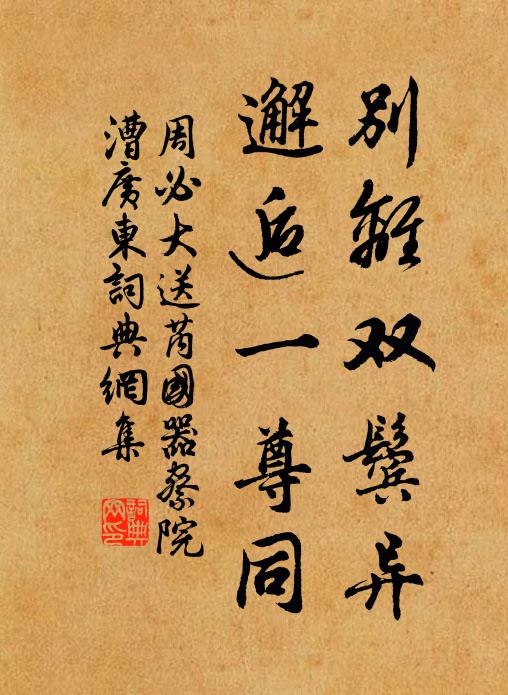 别離双鬓异
邂逅一尊同
周必大送芮國器察院
漕廣東詞典網集
詞典
网印